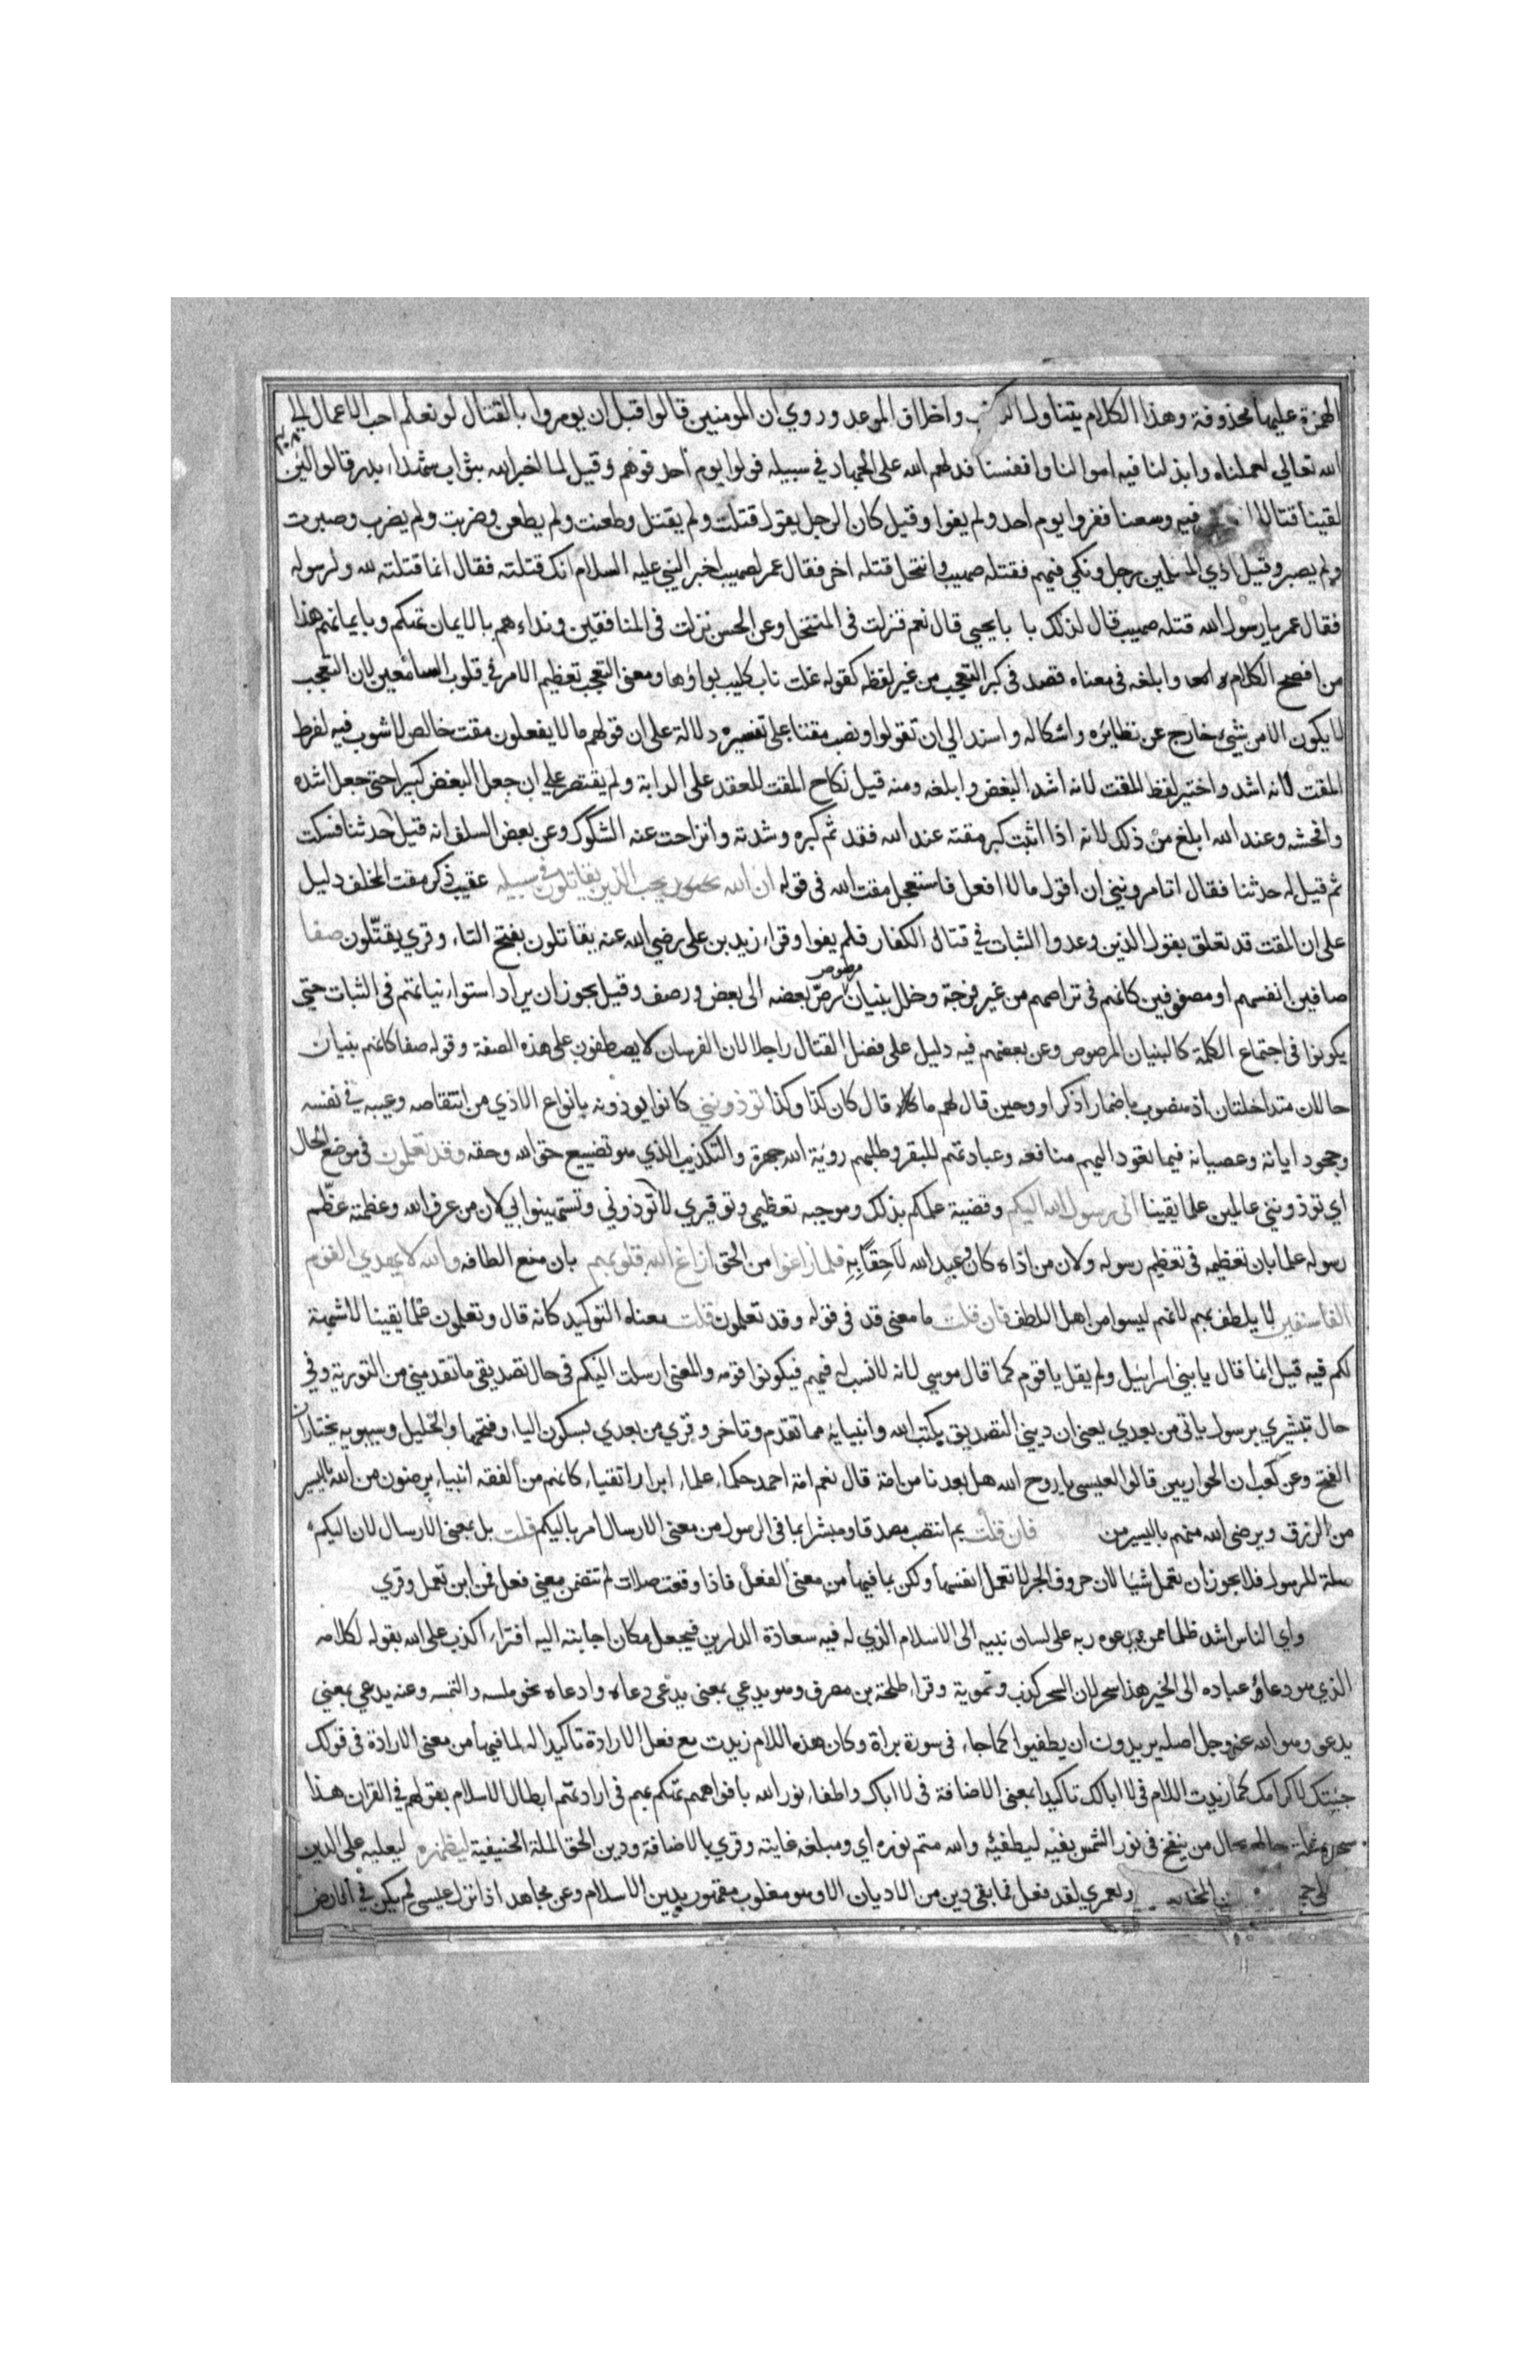 الهمزة عليها محذوفة وهذا الكلام يتناول واخلاف الموعد وروي ان المومنين قالوا قبل ان يومروا بالقتال لو نعلم احب الاعمال الي
الله تعالي لعملناه وابذلنا فيه اموالنا وانفسنا فدلهم الله على الجهاد في سبيله فولوا يوم احد فوهم وقيل لما اخبر الله بثواب شهداء بدر قالوا لئن
لقينا قتالا فيه وسعنا ففروا يوم احد ولم يفوا وقيل كان الرجل يقول قتلت ولم يقتل وطعنت ولم يطعن وضربت ولم يضرب وصبرت
ولم يصبر وقيل اذي المسلمين رجل ونكي فيهم فقتله صهيب وانتحل قتله اخر فقال عمر لصهيب اخبر النبي عليه السلام انك قتلته فقال انما قتلته لله ولرسوله
فقال عمر يا رسول الله قتله صهيب قال لذلك با يا يحيي قال نعم فنزلت في المنتحل وعن الحسن نزلت في المنافقين ونداءهم بالايمان تهكم وبايمانهم هذا
من افصح الكلام وابلغه في معناه قصد في كبر التعجب من غير لفظه كقوله غلت ناب كليب بواؤها ومعنى التعجب تعظيم الامر في قلوب السامعين لان التعجب
لا يكون الا من شيء خارج عن نظايره واشكاله واسند الي ان تقولوا ونصب مقتا على تفسيره دلالة على ان قولهم ما لا يفعلون مقت خالص لا شوب فيه لفرط
المقت لانه اشد واختير لفظ المقت لانه اشد البغض وابلغه ومنه قيل نكاح المقت للعقد على الرابة ولم يقتصر علي ان جعل البغض كبيرا حتى جعل اشده
وافحشه وعند الله ابلغ من ذلك لانه اذا اثبت كبر مقته عند الله فقد تم كبره وشدته وانزاحت عنه الشكوك وعن بعض السلف انه قيل له حدثنا فسكت
ثم قيل له حدثنا فقال اتامرونني ان اقول ما لا افعل فاستعجل مقت الله في قوله ان الله يحب الذين يقاتلون في سبيله عقيب ذكر مقت المخلف دليل
على ان المقت قد تعلق بقول الذين وعدوا الثبات في قتال الكفار فلم يفوا وقراء زيد بن على رضي الله عنه يقاتلون بفتح التاء وقري يقتّلون صفا
صافين انفسهم او مصفوفين كانهم في تراصهم من غير فرجة وخلل بنيان مرصوص رصّ بعضه الى بعض ورصف وقيل يجوز ان يراد استواء نياتهم في الثبات حتي
يكونوا في اجتماع الكلمة كالبنيان المرصوص وعن بعضهم فيه دليل على فضل القتال راجلا لان الفرسان لا يصطفون على هذه الصفة وقوله صفا كانهم بنيان
حالان متداخلتان اذ منصوب باضمار اذكر او وحين قال لهم ما قال كان كذا وكذا توذونني كانوا يوذونه بانواع الاذي من انتقاصه وعيبه في نفسه
وجحود اياته وعصيانه فيما تعود اليهم منافعه وعبادتهم للبقر وطلبهم روية الله جهرة والتكذيب الذي هو تضييع حق الله وحقه وقد تعلمون في موضع الحال
اي توذونني عالمين علما يقينا اني رسول الله اليكم وقضية علمكم بذلك وموجبه تعظيمي وتوقيري لا توذوني وتستهينوا بي لان من عرف الله وعظمته عظّم
رسوله علما بان تعظيمه في تعظيم رسوله ولان من اذاه كان وعيد الله لاحقا به فلما زاغوا من الحق ازاغ الله قلوبهم بان منع الطافه والله لا يهدي القوم
الفاسقين لا يلطف بهم لانهم ليسوا من اهل اللطف فان قلت ما معنى قد في قوله وقد تعلمون قلت معناه التوكيد كانه قال وتعلمون علما يقينا لا شبهة
لكم فيه قيل انما قال يا بني اسراييل ولم يقل يا قوم كما قال موسي لانه لا نسب له فيهم فيكونوا قومه والمعنى ارسلت اليكم في حال تصديقي ما تقدمني من التورية وفي
حال تبشيري برسول ياتي من بعدي يعني ان ديني التصديق بكتب الله وانبيايه مما تقدم وتاخر وقري من بعدي بسكون الياء وفتحها والخليل وسيبويه يختاران
الفتح وعن كعب ان الحواريين قالوا لعيسى يا روح الله هل بعدنا من امة قال نعم امة احمد حكماء علماء ابرار اتقياء كانهم من الفقه انبياء يرضون من الله باليسير
من الرزق ويرضى الله منهم باليسير من فان قلت بم انتصب مصدقا ومبشرا بما في الرسول من معنى الارسال ام باليكم قلت بل بمعنى الارسال لان اليكم
صلة للرسول فلا يجوز ان تعمل شيا لان حروف الجر لا تعمل انفسها ولكن بما فيها من معنى الفعل فاذا وقعت صلات لم تتضمن معنى فعل فمن اين تعمل وقري
واي الناس اشد ظلما ممن يدعوه ربه على لسان نبيه الى الاسلام الذي له فيه سعادة الدارين فيجعل مكان اجابته اليه افتراء الكذب على الله بقوله لكلامه
الذي هو دعاؤ عباده الى الخير هذا سحر لان السحر كذب وتمويه وقراء طلحة بن مصرف وهو يدعي بمعنى يدعى دعاه وادعاه نحو لمسه والتمسه وعنه يدعي بمعنى
يدعو وهو الله عز وجل اصله يريدون ان يطفيوا كما جاء في سورة براة وكان هذه اللام زيدت مع فعل الارادة تاكيدا له لما فيها من معنى الارادة في قولك
جيتك لاكرامك كما زيدت اللام في لا ابا لك تاكيدا لمعنى الاضافة في لا اباك واطفاء نور الله بافواههم تهكم بهم في ارادتهم ابطال الاسلام بقولهم في القران هذا
سحر حال من ينفخ في نور الشمس بفيه ليطفيه والله متم نوره اي ومبلغه غايته وقري بالاضافة ودين الحق الملة الحنيفية ليظهره ليعليه على الدين
ولعمري لقد فعل فما بقي دين من الاديان الا وهو مغلوب مقهور بدين الاسلام وعن مجاهد اذا نزل عيسى لم يكن في الارض